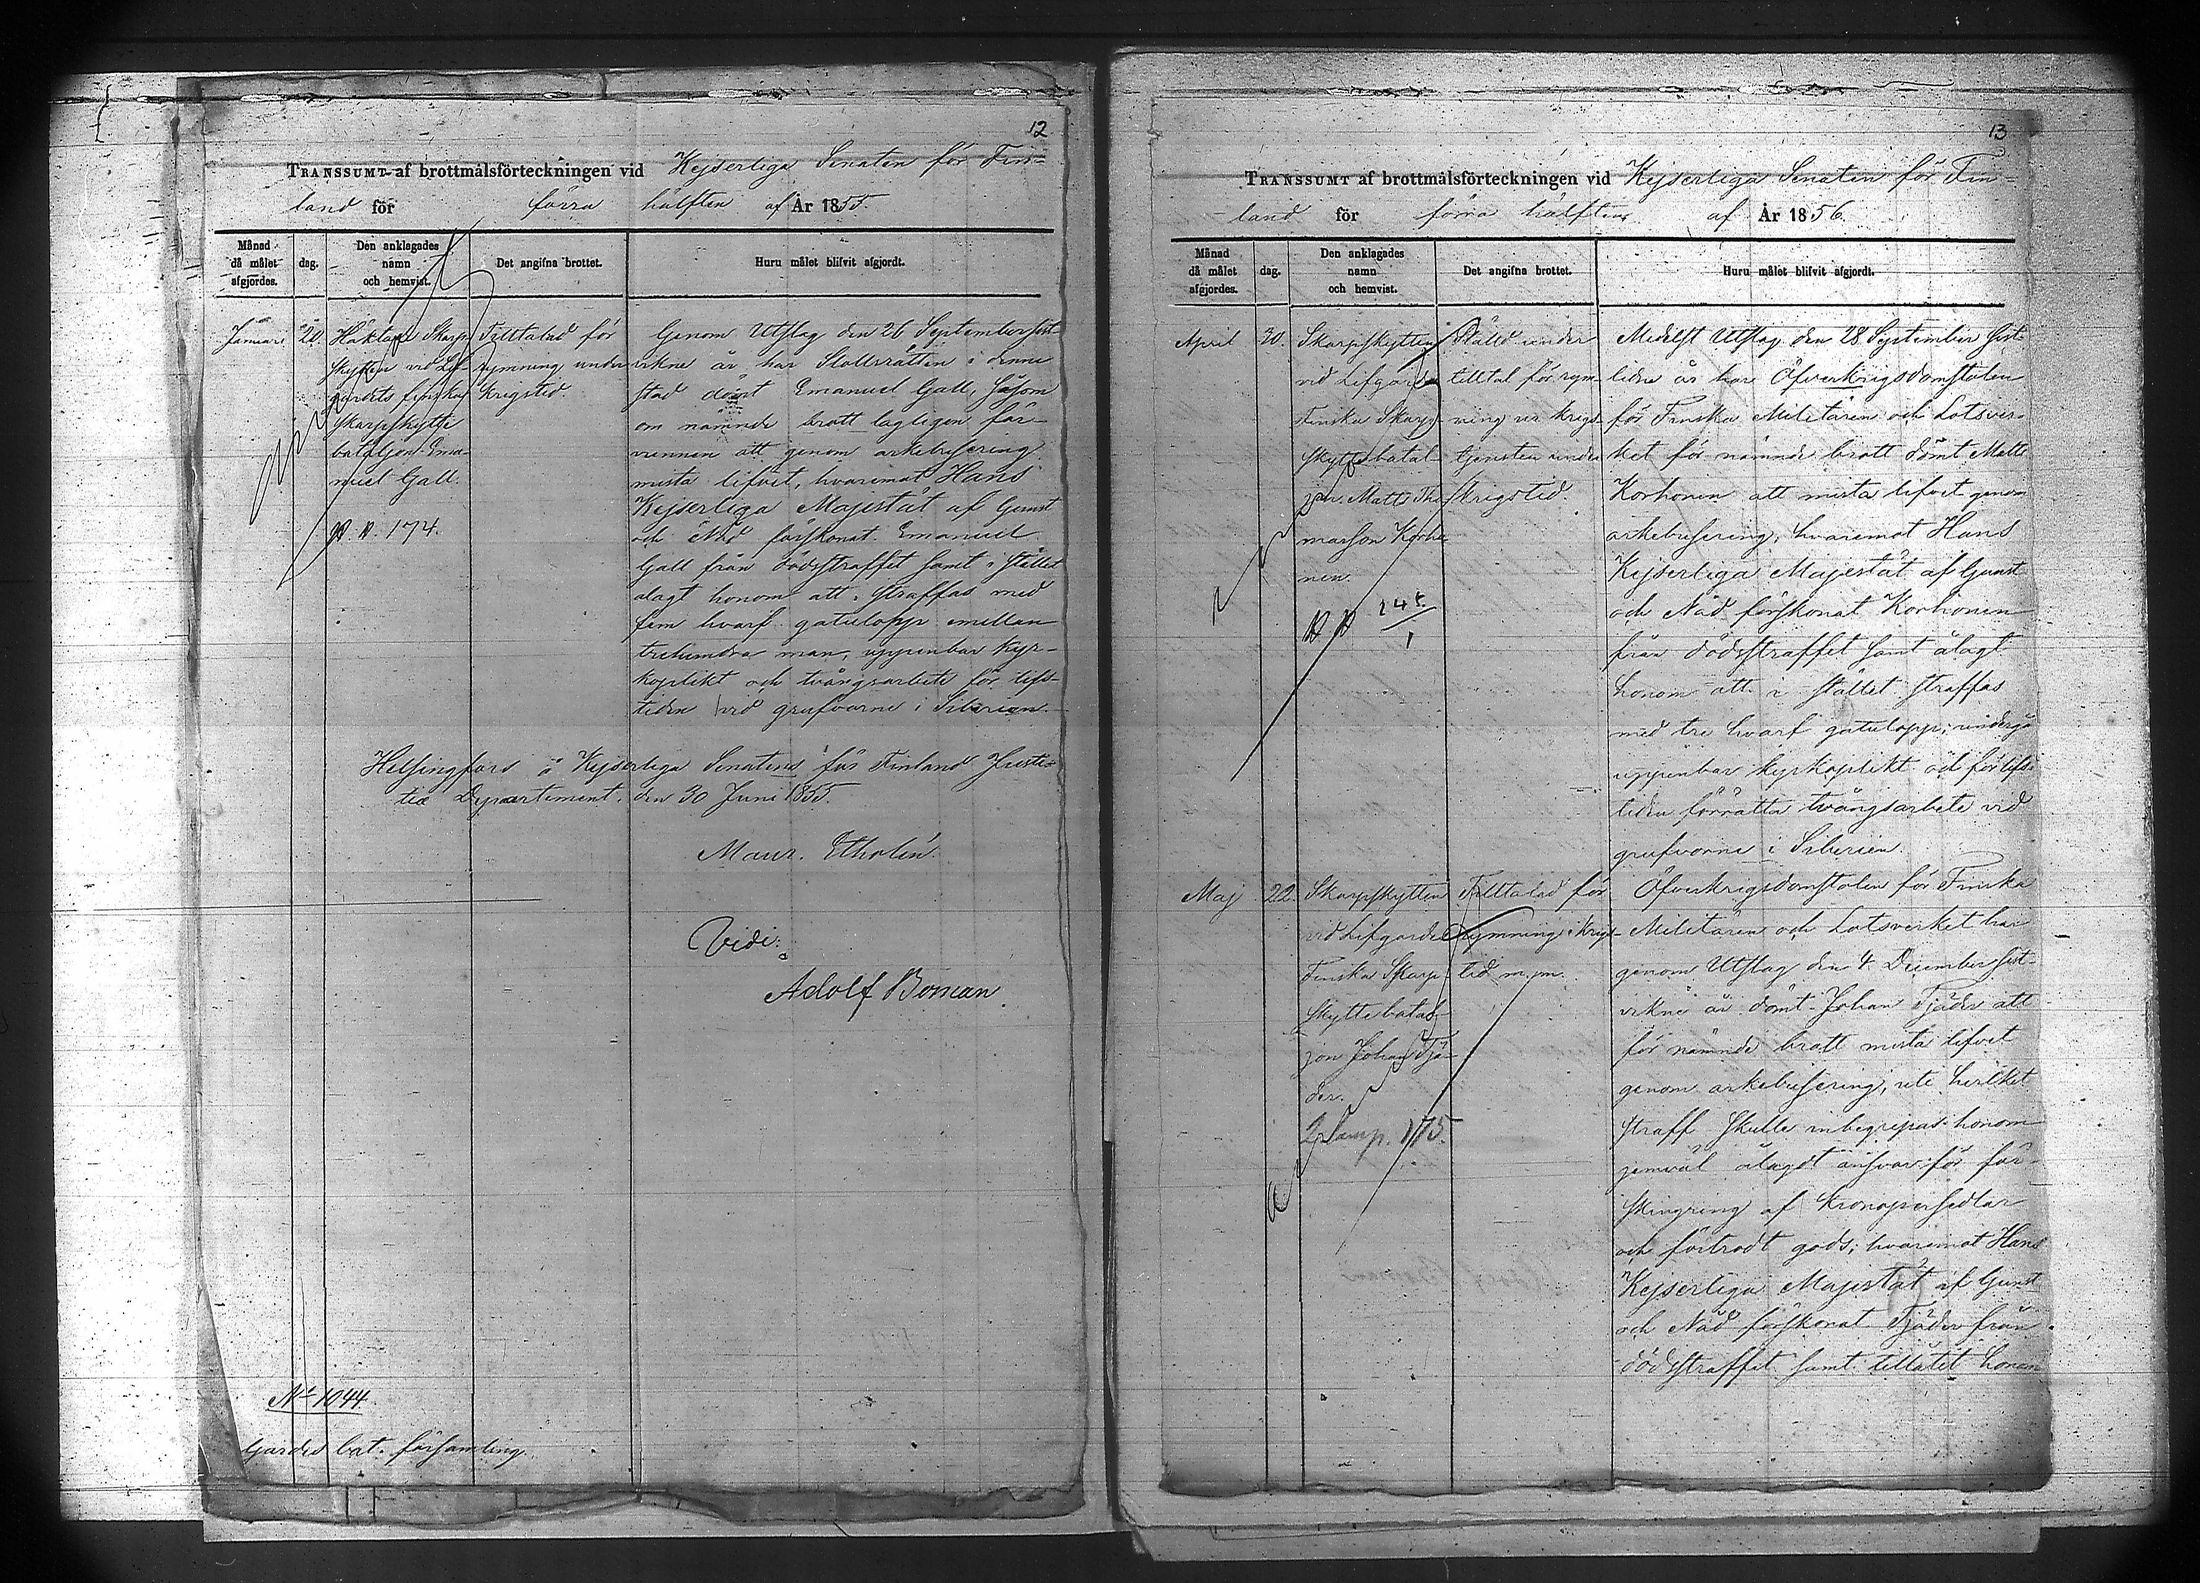 12
TRANSSUMT af brottmålsförteckningen vid Kejserliga Senaten för Fin-
land för förra hälften af År 1855.
Månad då målet afgjordes.
dag.
Den anklagades namn och hemvist.
Det angifna brottet.
Huru målet blifvit afgjordt.
Januari
20.
Häktade Skarp-
skytten vid Lif-
gardets finska
Skarpskytte
bataljon Ema-
nuel Gall.
174.
Tilltalad för
rymning under
Krigstid.
Genom Utslag den 26 September sist-
vikne år har Stabsrätten i denne
stad dömt Emanuel Gall, såsom
om nämnde brott lagligen för-
vunnen att genom arkebusering
mista lifvet, hvaremot Hans
Kejserliga Majestät af Gunst
och Nåd förskonat Emanuel
Gall från dödsstraffet samt i stället
ålagt honom att straffas med
fem hvarf gatulopp emellan
trehundra man, uppenbar kyr-
koplikt och tvångsarbete för lifs-
tiden vid grufvorne i Siberien.
Helsingfors å Kejserliga Senatens för Finland Justi-
tiæ Departement, den 30 Juni 1855.
Maur. Etholén.
Vidi:
Adolf Boman.
No 1044.
Gardes bat. församling.
13
TRANSSUMT af brottmålsförteckningen vid Kejserliga Senaten för Fin-
land för förra hälften af År 1856.
Månad då målet afgjordes.
dag.
Den anklagades namn och hemvist.
Det angifna brottet.
Huru målet blifvit afgjordt.
April
30.
Skarpskytten
vid Lifgardes
Finska Skarp-
skyttebatal-
jon Matts Tho-
masson Korho-
nen.
245
1
Ställd under
tilltal för rym-
ning ur krigs-
tjensten under
krigstid.
Medelst Utslag den 28 September sist-
lidne år har Öfverkrigsdomstolen
för Finska Militären och Lotsver-
ket för nämnde brott dömt Matts
Korhonen att mista lifvet genom
arkebusering, hvaremot Hans
Kejserliga Majestät af Gunst
och Nåd förskonat Korhonen
från dödsstraffet samt ålagt
honom att i stället straffas
med tre hvarf gatulopp, undergå
uppenbar kyrkoplikt och för lifs-
tiden förrätta tvångsarbete vid
grufvorne i Siberien.
Maj
22.
Skarpskytten
vid Lifgardes
Finska Skarp-
skyttebatal-
jon Johan Tjä-
der.
2 Komp. 175.
Tilltalad för
rymning i Krigs-
tid m.m.
Öfverkrigsdomstolen för Finska
Militären och Lotsverket har
genom Utslag den 4 December sist-
vikne år dömt Johan Tjäder att
för nämnde brott mista lifvet
genom arkebusering, uti hvilket
straff skulle inbegripas honom
jemväl ålagdt ansvar för för-
skingring af Kronopersedlar
och förtrodt gods; hvaremot Hans
Kejserliga Majestät af Gunst
och Nåd förskonat Tjäder från
dödsstraffet samt tillåtit honom